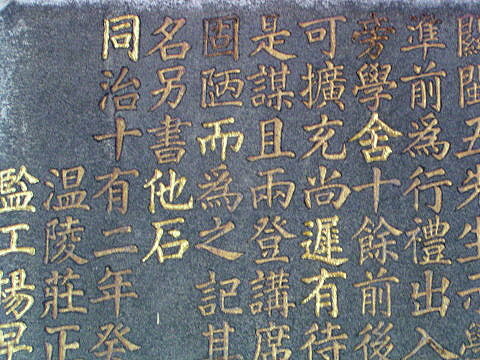 閩五先生示
準前為行禮出入
旁學舍十餘前後
可擴充尚遲有待
是謀且兩登講席
固陋而為之記其
名另書他石
同治十有二年癸
温陵莊正
監工楊